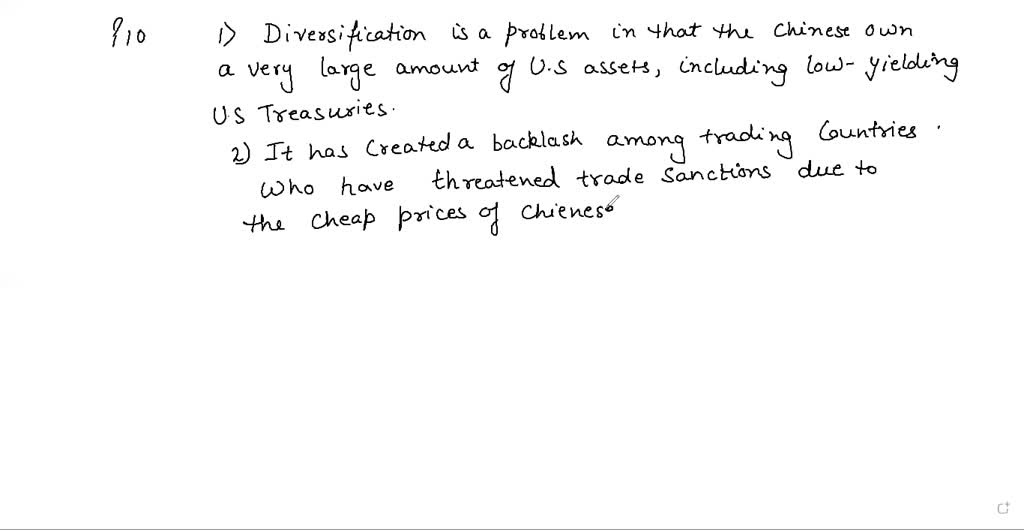 P10 1) Diversification is a problem in that the Chinese own
a very large amount of U.S assets, including low-yielding
U.S Treasuries.
2) It has Created a backlash among trading Countries.
who have threatened trade Sanctions due to
the cheap prices of Chienese